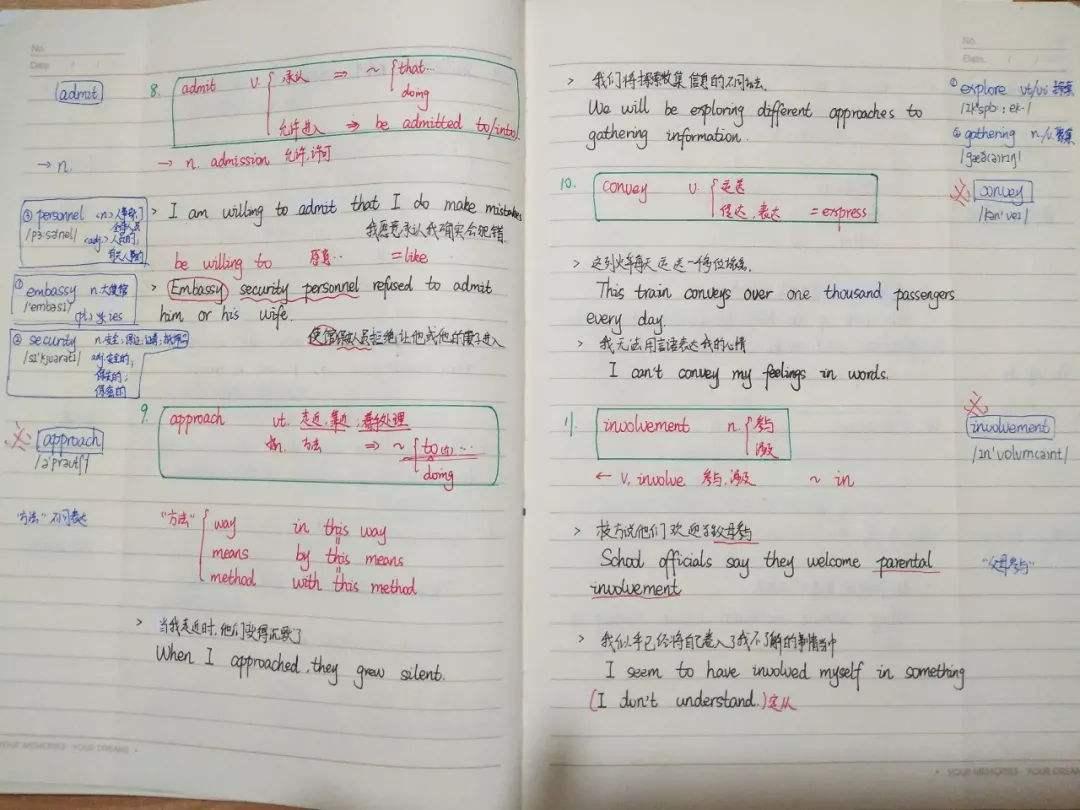 No.
Date
admit
8. admit v. 承认 ⇒ ~ that...
doing
允许进入 ⇒ be admitted to/into
→ n.
→ n. admission 允许,许可
③ personnel <n>人事部门
全体人员
<adj.>人员的,
有关人事的
/pɜ:sənel/
> I am willing to admit that I do make mistakes
我愿意承认我确实会犯错.
be willing to 愿意… =like
① embassy n.大使馆
/'embəsɪ/ (pl.) ies
> Embassy security personnel refused to admit
him or his wife.
使馆保安人员拒绝让他或他的妻子进入
② security n.安全;保证;证券;抵押品
/sɪ'kjʊərətɪ/ adj.安全的;
保安的;
保密的
9. approach vt. 走近,靠近,着手处理
n. 方法 ⇒ ~ to(介)...
doing
approach
/ə'prəʊtʃ/
"方法"不同表达
"方法" way in this way
means by this means
method with this method
> 当我走近时,他们变得沉默了
When I approached, they grew silent.
YOUR MEMORIES · YOUR DREAMS
No.
Date
> 我们将探索收集信息的不同方法.
We will be exploring different approaches to
gathering information.
① explore vt/vi 探索
② gathering n./v. 聚集
10. convey v. 运送
传达,表达 =express
convey
/kən'veɪ/
> 这列火车每天运送一千多位旅客.
This train conveys over one thousand passengers
every day.
> 我无法用言语表达我的心情
I can't convey my feelings in words.
11. involvement n. 参与
涉及
← v. involve 参与,涉及 ~ in
involvement
> 校方说他们欢迎家长参与
School officials say they welcome parental
involvement
"父母参与"
> 我似乎已经将自己卷入了我不了解的事情当中
I seem to have involved myself in something
(I don't understand.)定从
YOUR MEMORIES · YOUR DREAMS